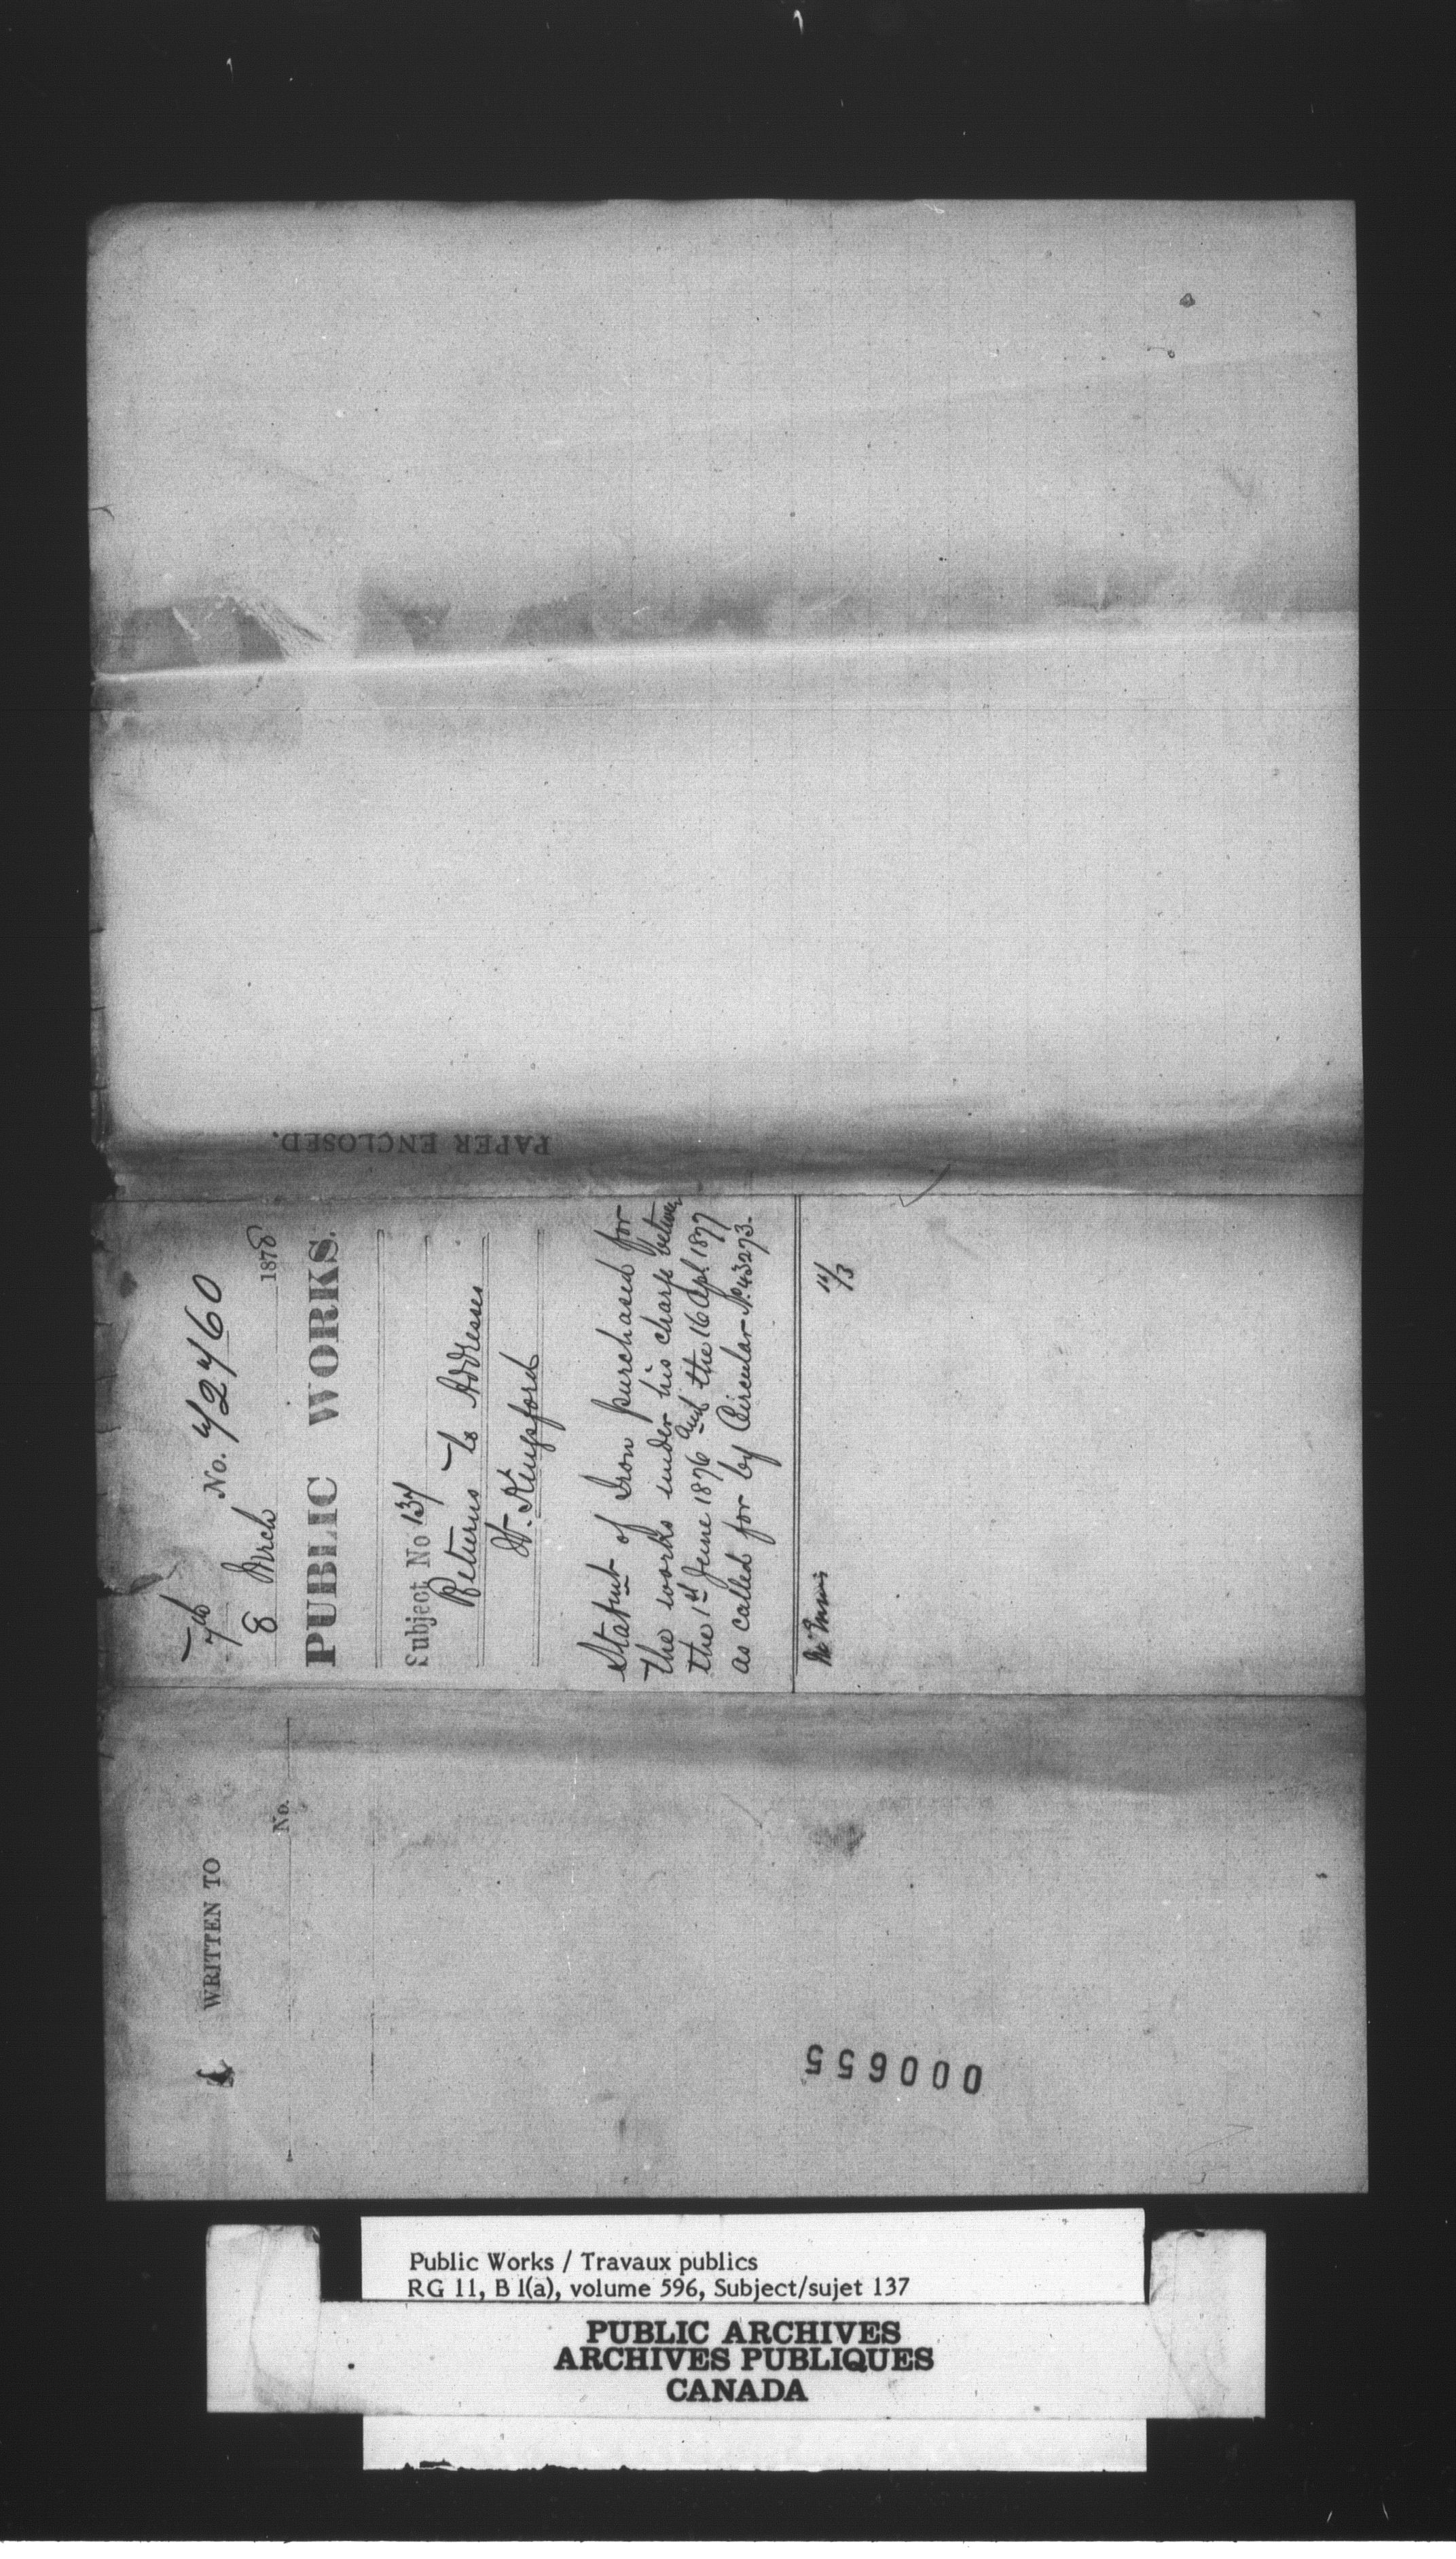 PAPER ENCLOSED.
7th No. 72760
8 Mrch 1878
PUBLIC WORKS.
Subject No 137
Returns to Addresses
W. Kingsford
Statmt of Iron purchased for
the works under his charge between
the 1st June 1876 and the 16 Apl. 1877
as called for by Circular No. 43273.
12/3
WRITTEN TO
No.
000655
Public Works / Travaux publics
RG 11, B 1(a), volume 596, Subject/sujet 137
PUBLIC ARCHIVES
ARCHIVES PUBLIQUES
CANADA